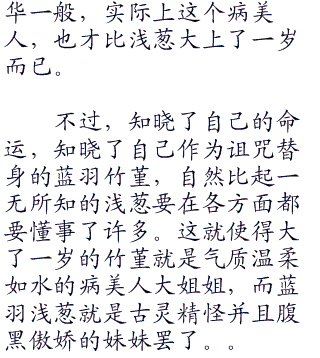 华一般，实际上这个病美
人，也才比浅葱大上了一岁
而已。
不过，知晓了自己的命
运，知晓了自己作为诅咒替
身的蓝羽竹堇，自然比起一
无所知的浅葱要在各方面都
要懂事了许多。这就使得大
了一岁的竹堇就是气质温柔
如水的病美人大姐姐，而蓝
羽浅葱就是古灵精怪并且腹
黑傲娇的妹妹罢了。。